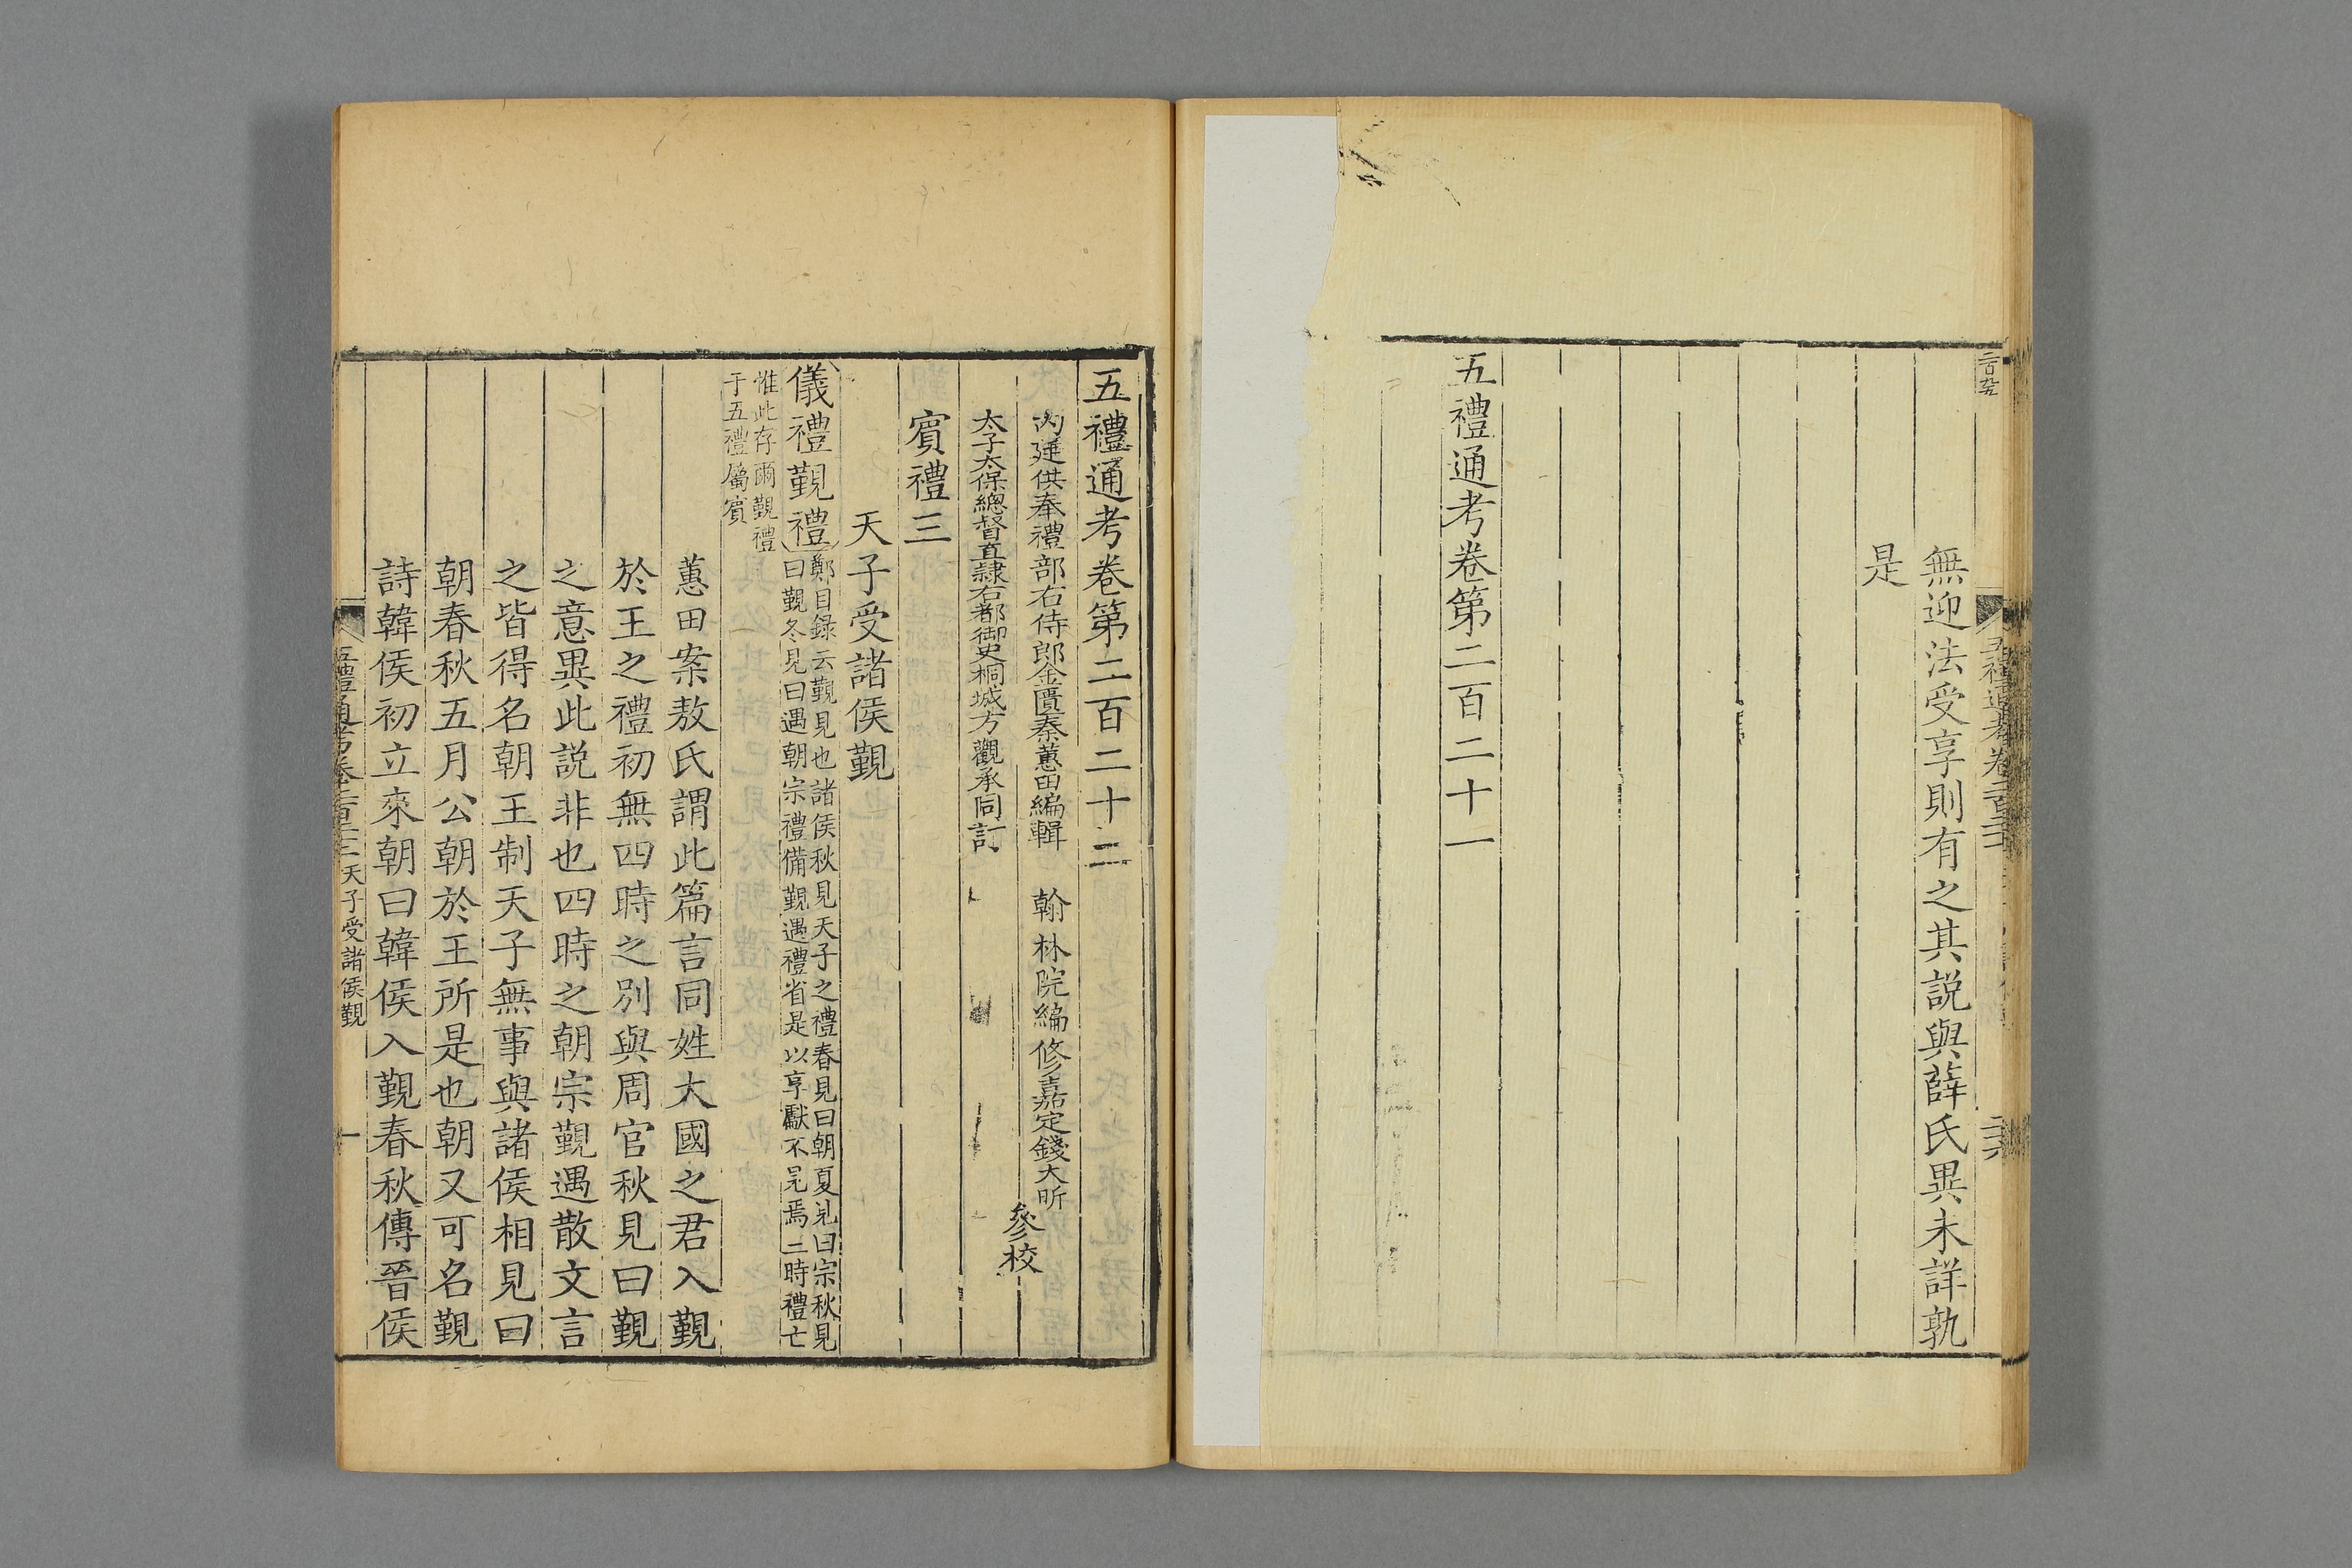 無迎法受享則有之其説與薛氏異未詳孰
是
五禮通考卷第二百二十一
五禮通考卷第二百二十二
内廷供奉禮部右侍郎金匱秦蕙田編輯
翰林院編修嘉定錢大昕
參校
太子太保總督直隷右都御史桐城方觀承同訂
賓禮三
天子受諸侯覲
儀禮覲禮
鄭目録云覲見也諸侯秋見天子之禮春見曰朝夏見曰宗秋見
曰覲冬見曰遇朝宗禮備覲遇禮省是以享獻不見焉三時禮亡
惟此存爾覲禮
于五禮屬賓
蕙田案敖氏謂此篇言同姓大國之君入覲
於王之禮初無四時之別與周官秋見曰覲
之意異此説非也四時之朝宗覲遇散文言
之皆得名朝王制天子無事與諸侯相見曰
朝春秋五月公朝於王所是也朝又可名覲
詩韓侯初立來朝曰韓侯入覲春秋傳晉侯
五禮通考卷二百二十二 天子受諸侯覲
一